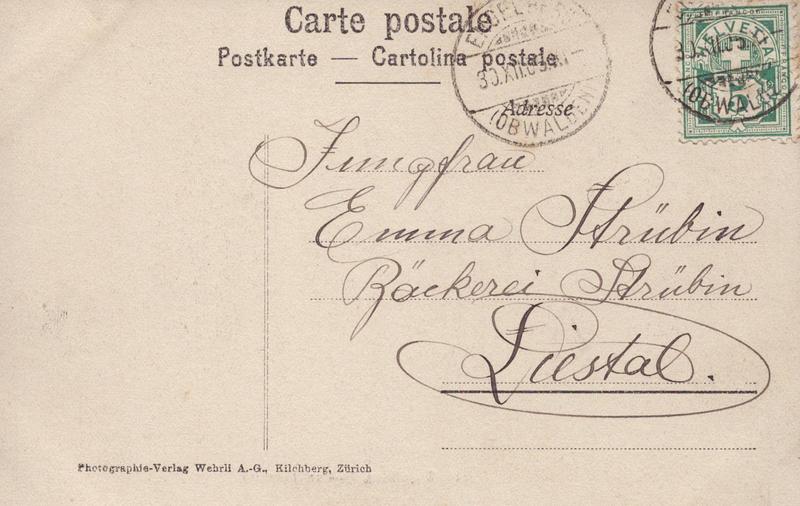 Carte postale
Postkarte — Cartolina postale
Adresse
(OBWALDEN)
HELVETIA
Jungfrau
Emma Strübin
Bäckerei Strübin
Liestal.
Photographie-Verlag Wehrli A.-G., Kilchberg, Zürich